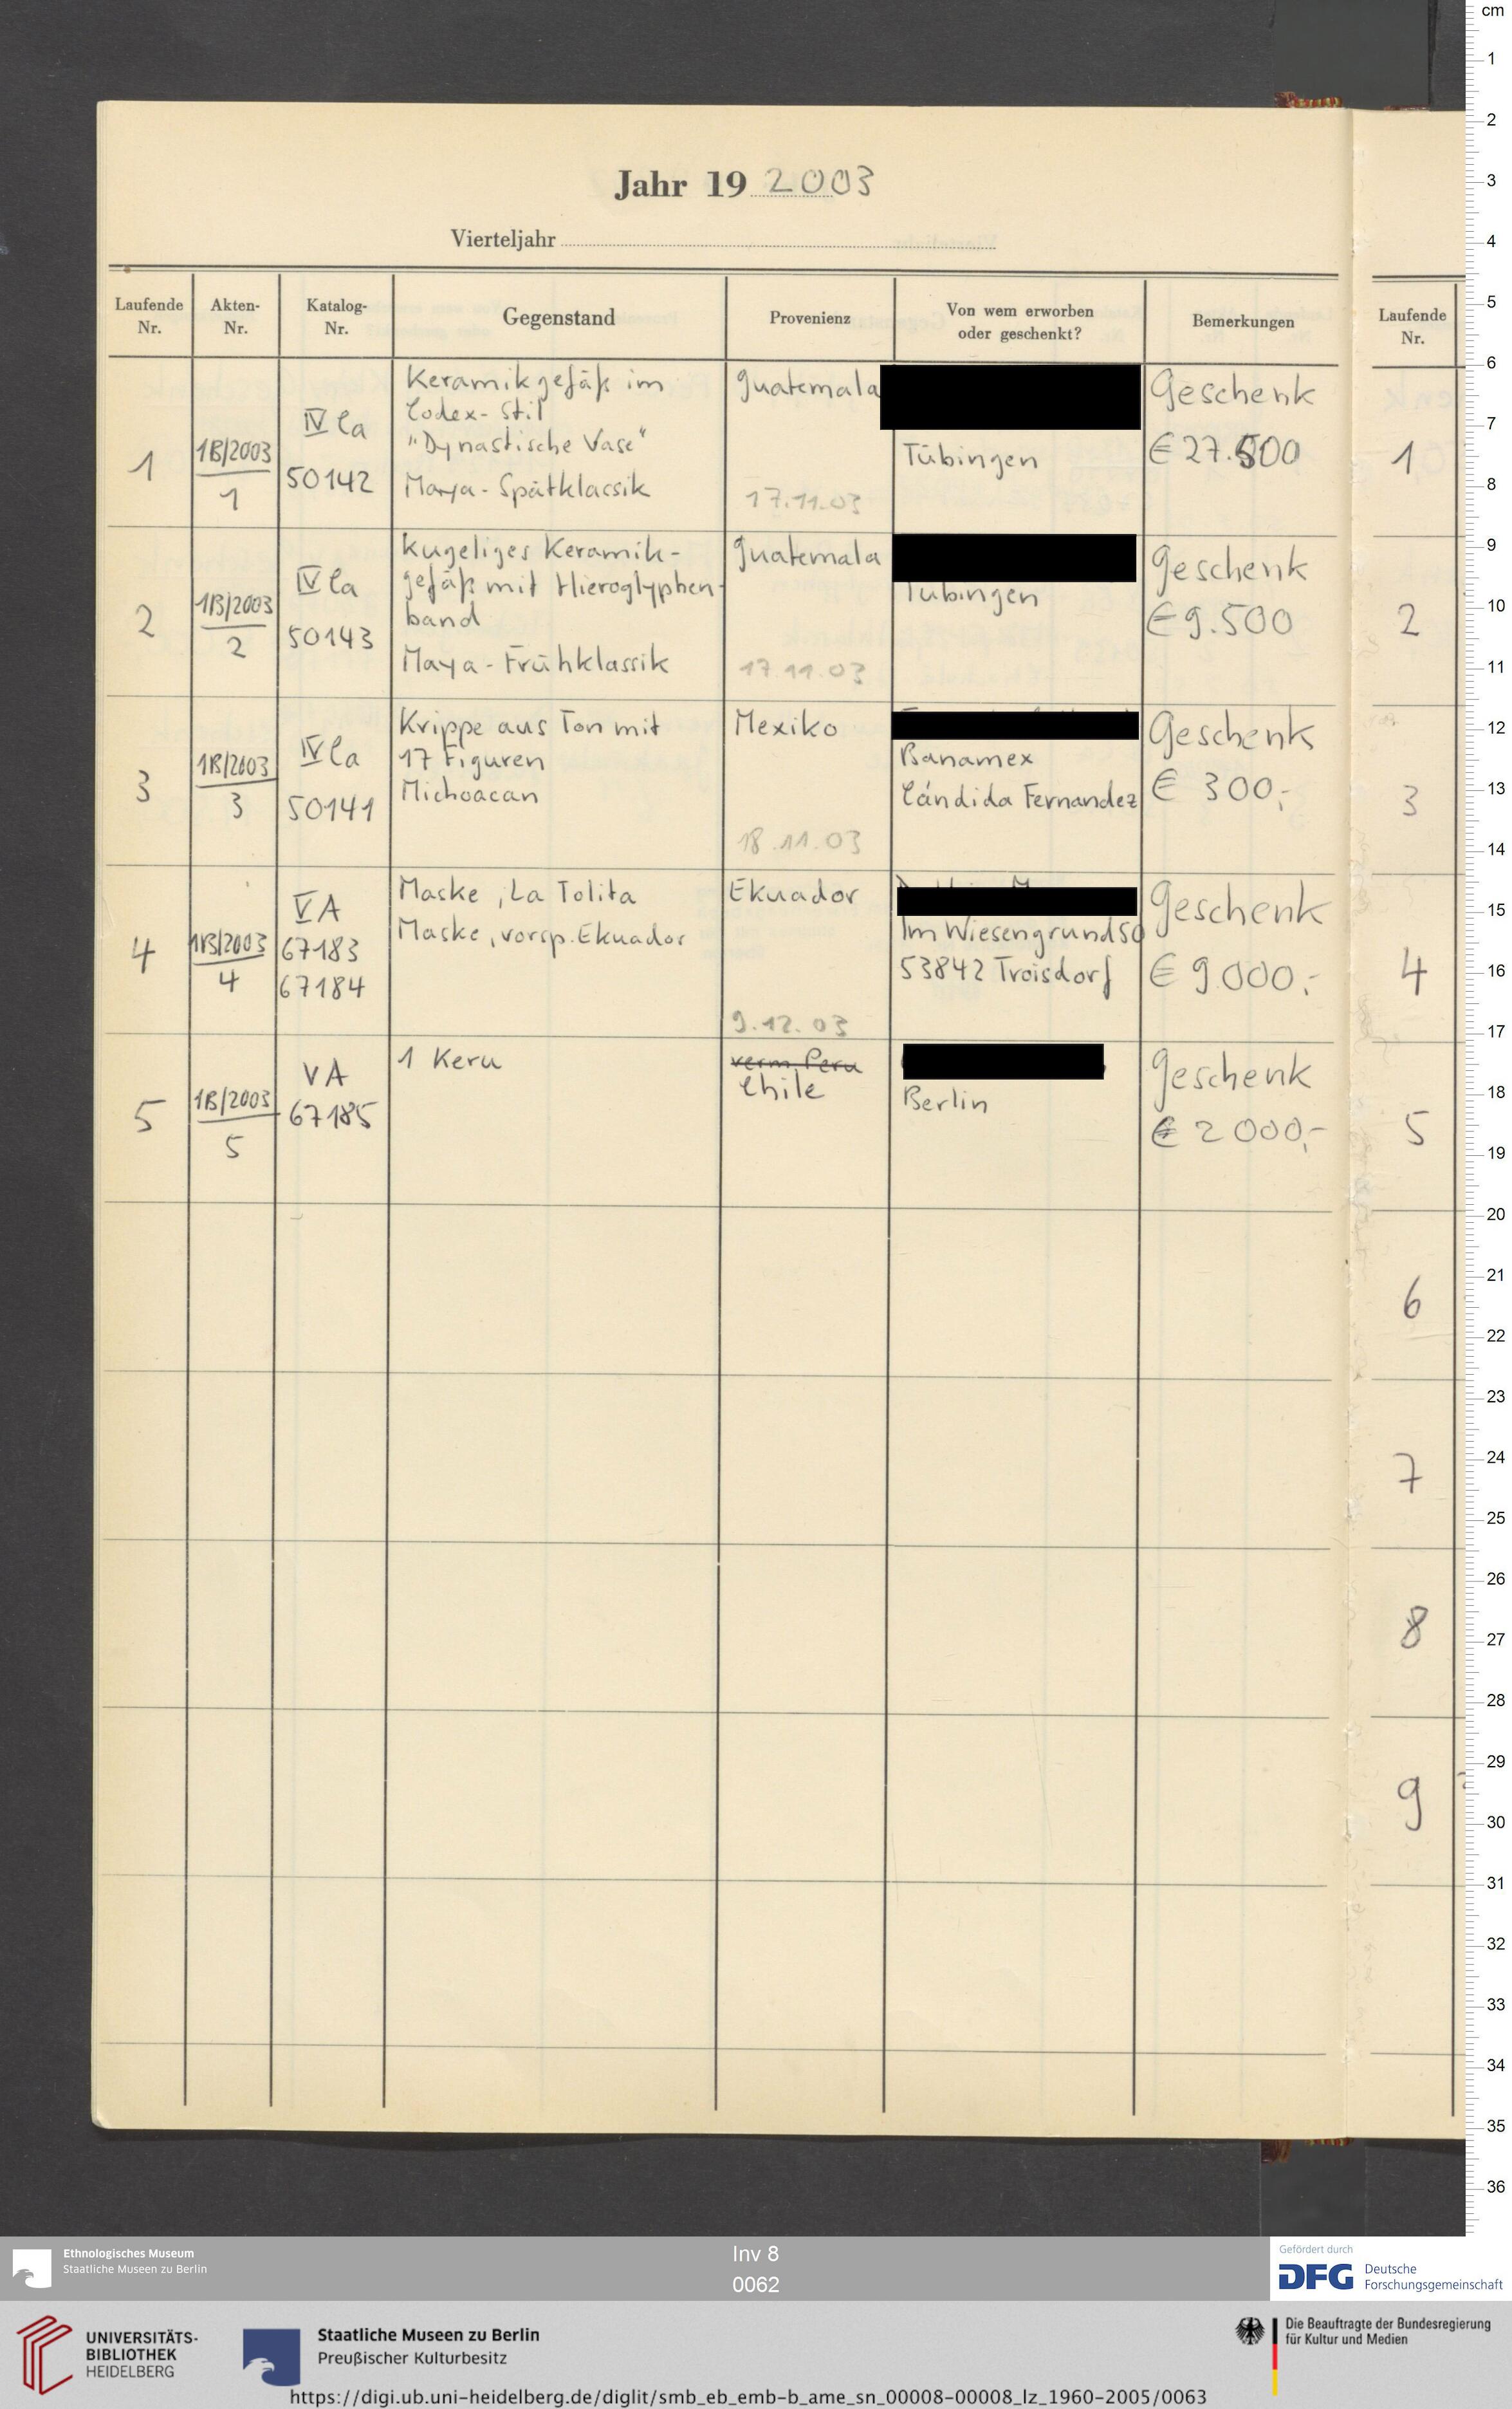 Jahr 19 2003
Vierteljahr
Laufende Nr.
Akten-Nr.
Katalog-Nr.
Gegenstand
Provenienz
Von wem erworben oder geschenkt?
Bemerkungen
Laufende Nr.
1
1B/2003
1
IV Ca
50142
Keramikgefäß im
Codex-Stil
"Dynastische Vase"
Maya-Spätklassik
Guatemala
17.11.03
Tübingen
Geschenk
€ 27.500
1
2
1B/2003
2
IV Ca
50143
Kugeliges Keramik-
gefäß mit Hieroglyphen-
band
Maya-Frühklassik
Guatemala
17.11.03
Tübingen
Geschenk
€ 9.500
2
3
1B/2003
3
IV Ca
50141
Krippe aus Ton mit
17 Figuren
Michoacan
Mexiko
18.11.03
Banamex
Cándida Fernandez
Geschenk
€ 300,-
3
4
1B/2003
4
V A
67183
67184
Maske, La Tolita
Maske, vorsp. Ekuador
Ekuador
9.12.03
Im Wiesengrund
53842 Troisdorf
Geschenk
€ 9.000,-
4
5
1B/2003
5
VA
67185
1 Keru
verm. Peru
Chile
Berlin
Geschenk
€ 2000,-
5
6
7
8
9
cm
1
2
3
4
5
6
7
8
9
10
11
12
13
14
15
16
17
18
19
20
21
22
23
24
25
26
27
28
29
30
31
32
33
34
35
36
Ethnologisches Museum
Staatliche Museen zu Berlin
Inv 8
0062
Gefördert durch
DFG Deutsche
Forschungsgemeinschaft
UNIVERSITÄTS-
BIBLIOTHEK
HEIDELBERG
Staatliche Museen zu Berlin
Preußischer Kulturbesitz
Die Beauftragte der Bundesregierung
für Kultur und Medien
https://digi.ub.uni-heidelberg.de/diglit/smb_eb_emb-b_ame_sn_00008-00008_lz_1960-2005/0063